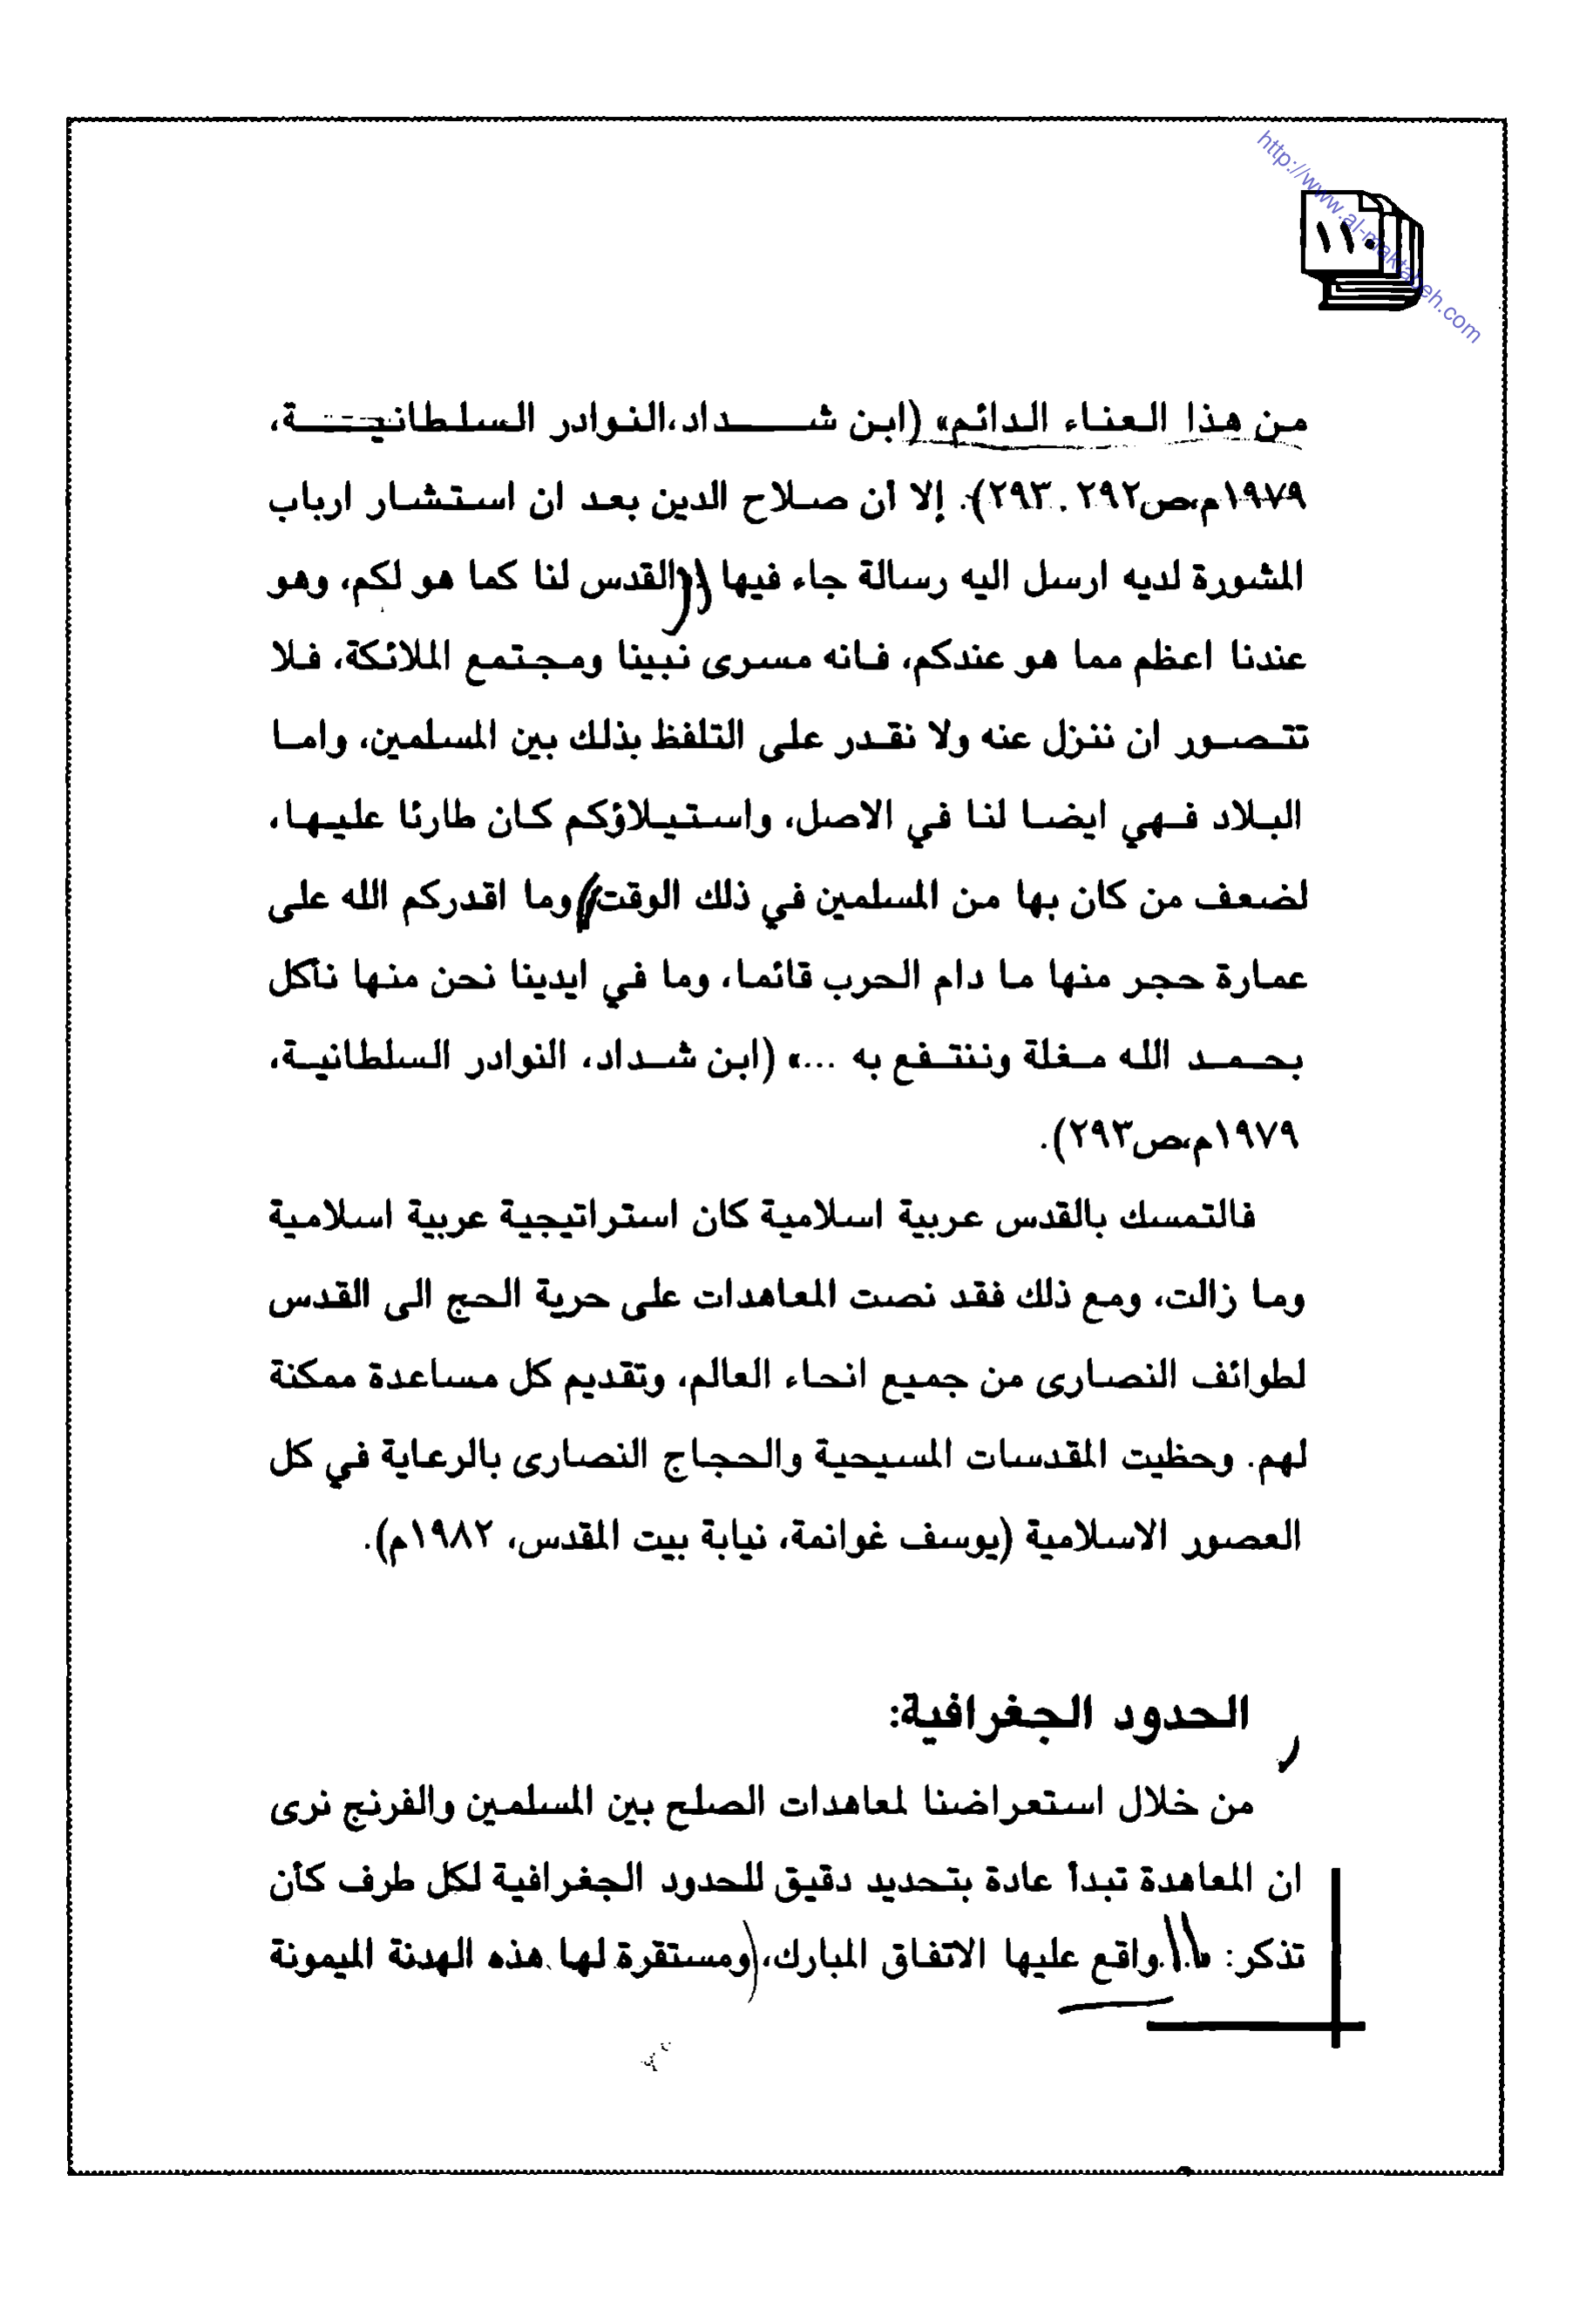 http://www.al-maktabeh.com
١١٠
من هذا العناء الدائم» (ابن شداد،النوادر السلطانية،
١٩٧٩م،ص٢٩٢ . ٢٩٣). إلا أن صلاح الدين بعد ان استشار ارباب
المشورة لديه ارسل اليه رسالة جاء فيها ((القدس لنا كما هو لكم، وهو
عندنا اعظم مما هو عندكم، فانه مسرى نبينا ومجتمع الملائكة، فلا
تتصور ان ننزل عنه ولا نقدر على التلفظ بذلك بين المسلمين، واما
البلاد فهي ايضا لنا في الاصل، واستيلاؤكم كان طارئا عليها،
لضعف من كان بها من المسلمين في ذلك الوقت) وما اقدركم الله على
عمارة حجر منها ما دام الحرب قائما، وما في ايدينا نحن منها نأكل
بحمد الله مغلة وننتفع به ...» (ابن شداد، النوادر السلطانية،
١٩٧٩م،ص٢٩٣).
فالتمسك بالقدس عربية اسلامية كان استراتيجية عربية اسلامية
وما زالت، ومع ذلك فقد نصت المعاهدات على حرية الحج الى القدس
لطوائف النصارى من جميع انحاء العالم، وتقديم كل مساعدة ممكنة
لهم. وحظيت المقدسات المسيحية والحجاج النصارى بالرعاية في كل
العصور الاسلامية (يوسف غوانمة، نيابة بيت المقدس، ١٩٨٢م).
الحدود الجغرافية:
من خلال استعراضنا لمعاهدات الصلح بين المسلمين والفرنج نرى
ان المعاهدة تبدأ عادة بتحديد دقيق للحدود الجغرافية لكل طرف كأن
تذكر: واقع عليها الاتفاق المبارك، (ومستقرة لها هذه الهدنة الميمونة